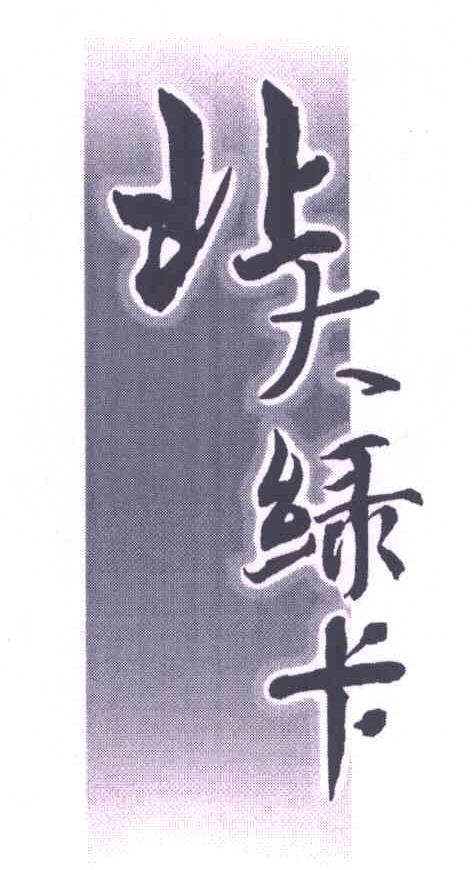 北大绿卡